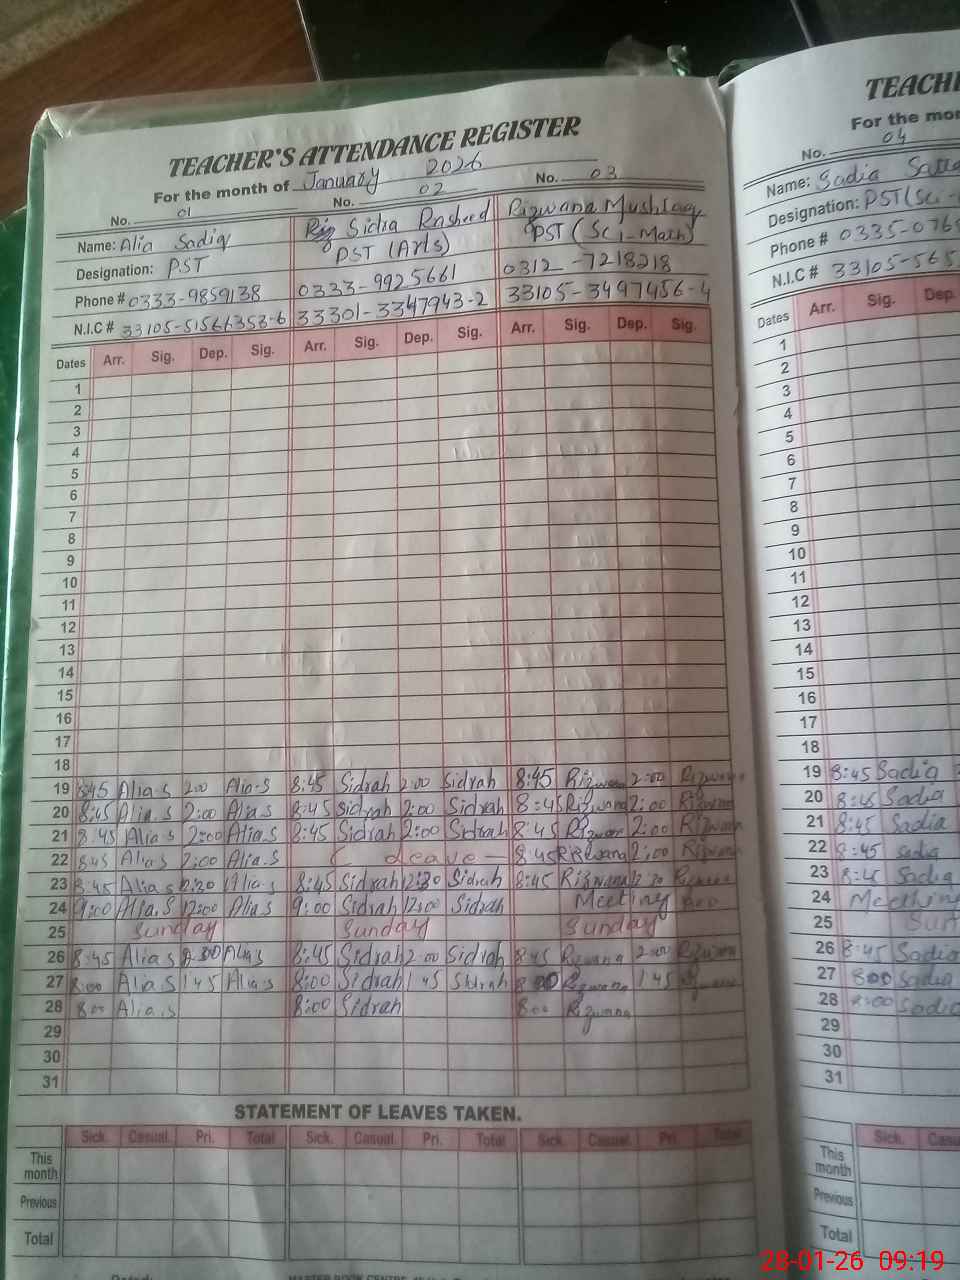 TEACHER'S ATTENDANCE REGISTER
For the month of January 2026
No. 01 No. 02 No. 03
Name: Alia Sadiq Sidra Rasheed Rizwana Mushtaq
Designation: PST PST (Arts) PST (Sci-Math)
Phone # 0333-9859138 0333-9925661 0312-7218218
N.I.C # 33105-51566353-6 33301-3347943-2 33105-3497456-4
Dates Arr. Sig. Dep. Sig. Arr. Sig. Dep. Sig. Arr. Sig. Dep. Sig.
1
2
3
4
5
6
7
8
9
10
11
12
13
14
15
16
17
18
19 8:45 Alia.S 2:00 Alia.S 8:45 Sidrah 2:00 Sidrah 8:45 Rizwana 2:00 Rizwana
20 8:45 Alia.S 2:00 Alia.S 8:45 Sidrah 2:00 Sidrah 8:45 Rizwana 2:00 Rizwana
21 8:45 Alia.S 2:00 Alia.S 8:45 Sidrah 2:00 Sidrah 8:45 Rizwana 2:00 Rizwana
22 8:45 Alia.S 2:00 Alia.S Leave 8:45 Rizwana 2:00 Rizwana
23 8:45 Alia.S 12:30 Alia.S 8:45 Sidrah 12:30 Sidrah 8:45 Rizwana 12:30
24 9:00 Alia.S 12:00 Alia.S 9:00 Sidrah 12:00 Sidrah Meeting
25 Sunday Sunday Sunday
26 8:45 Alia.S Alia.S 8:45 Sidrah 2:00 Sidrah 8:45 Rizwana 2:00 Rizwana
27 8:00 Alia.S 1:45 Alia.S 8:00 Sidrah 1:45 Sidrah 8:00 Rizwana 1:45 Rizwana
28 8:00 Alia.S 8:00 Sidrah 8:00 Rizwana
29
30
31
STATEMENT OF LEAVES TAKEN.
Sick. Casual. Pri. Total Sick. Casual. Pri. Total Sick. Casual. Pri. Total
This month
Previous
Total
For the
No. 04
Name: Sadia
Designation: PST (Sci-
Phone # 0335-076
N.I.C # 33105-565
Dates Arr. Sig. Dep.
1
2
3
4
5
6
7
8
9
10
11
12
13
14
15
16
17
18
19 8:45 Sadia
20 8:45 Sadia
21 8:45 Sadia
22 8:45 Sadia
23 8:45 Sadia
24 Meeting
25
26 8:45 Sadia
27 8:00 Sadia
28 8:00 Sadia
29
30
31
Sick.
This month
Previous
Total
28-01-26 09:19